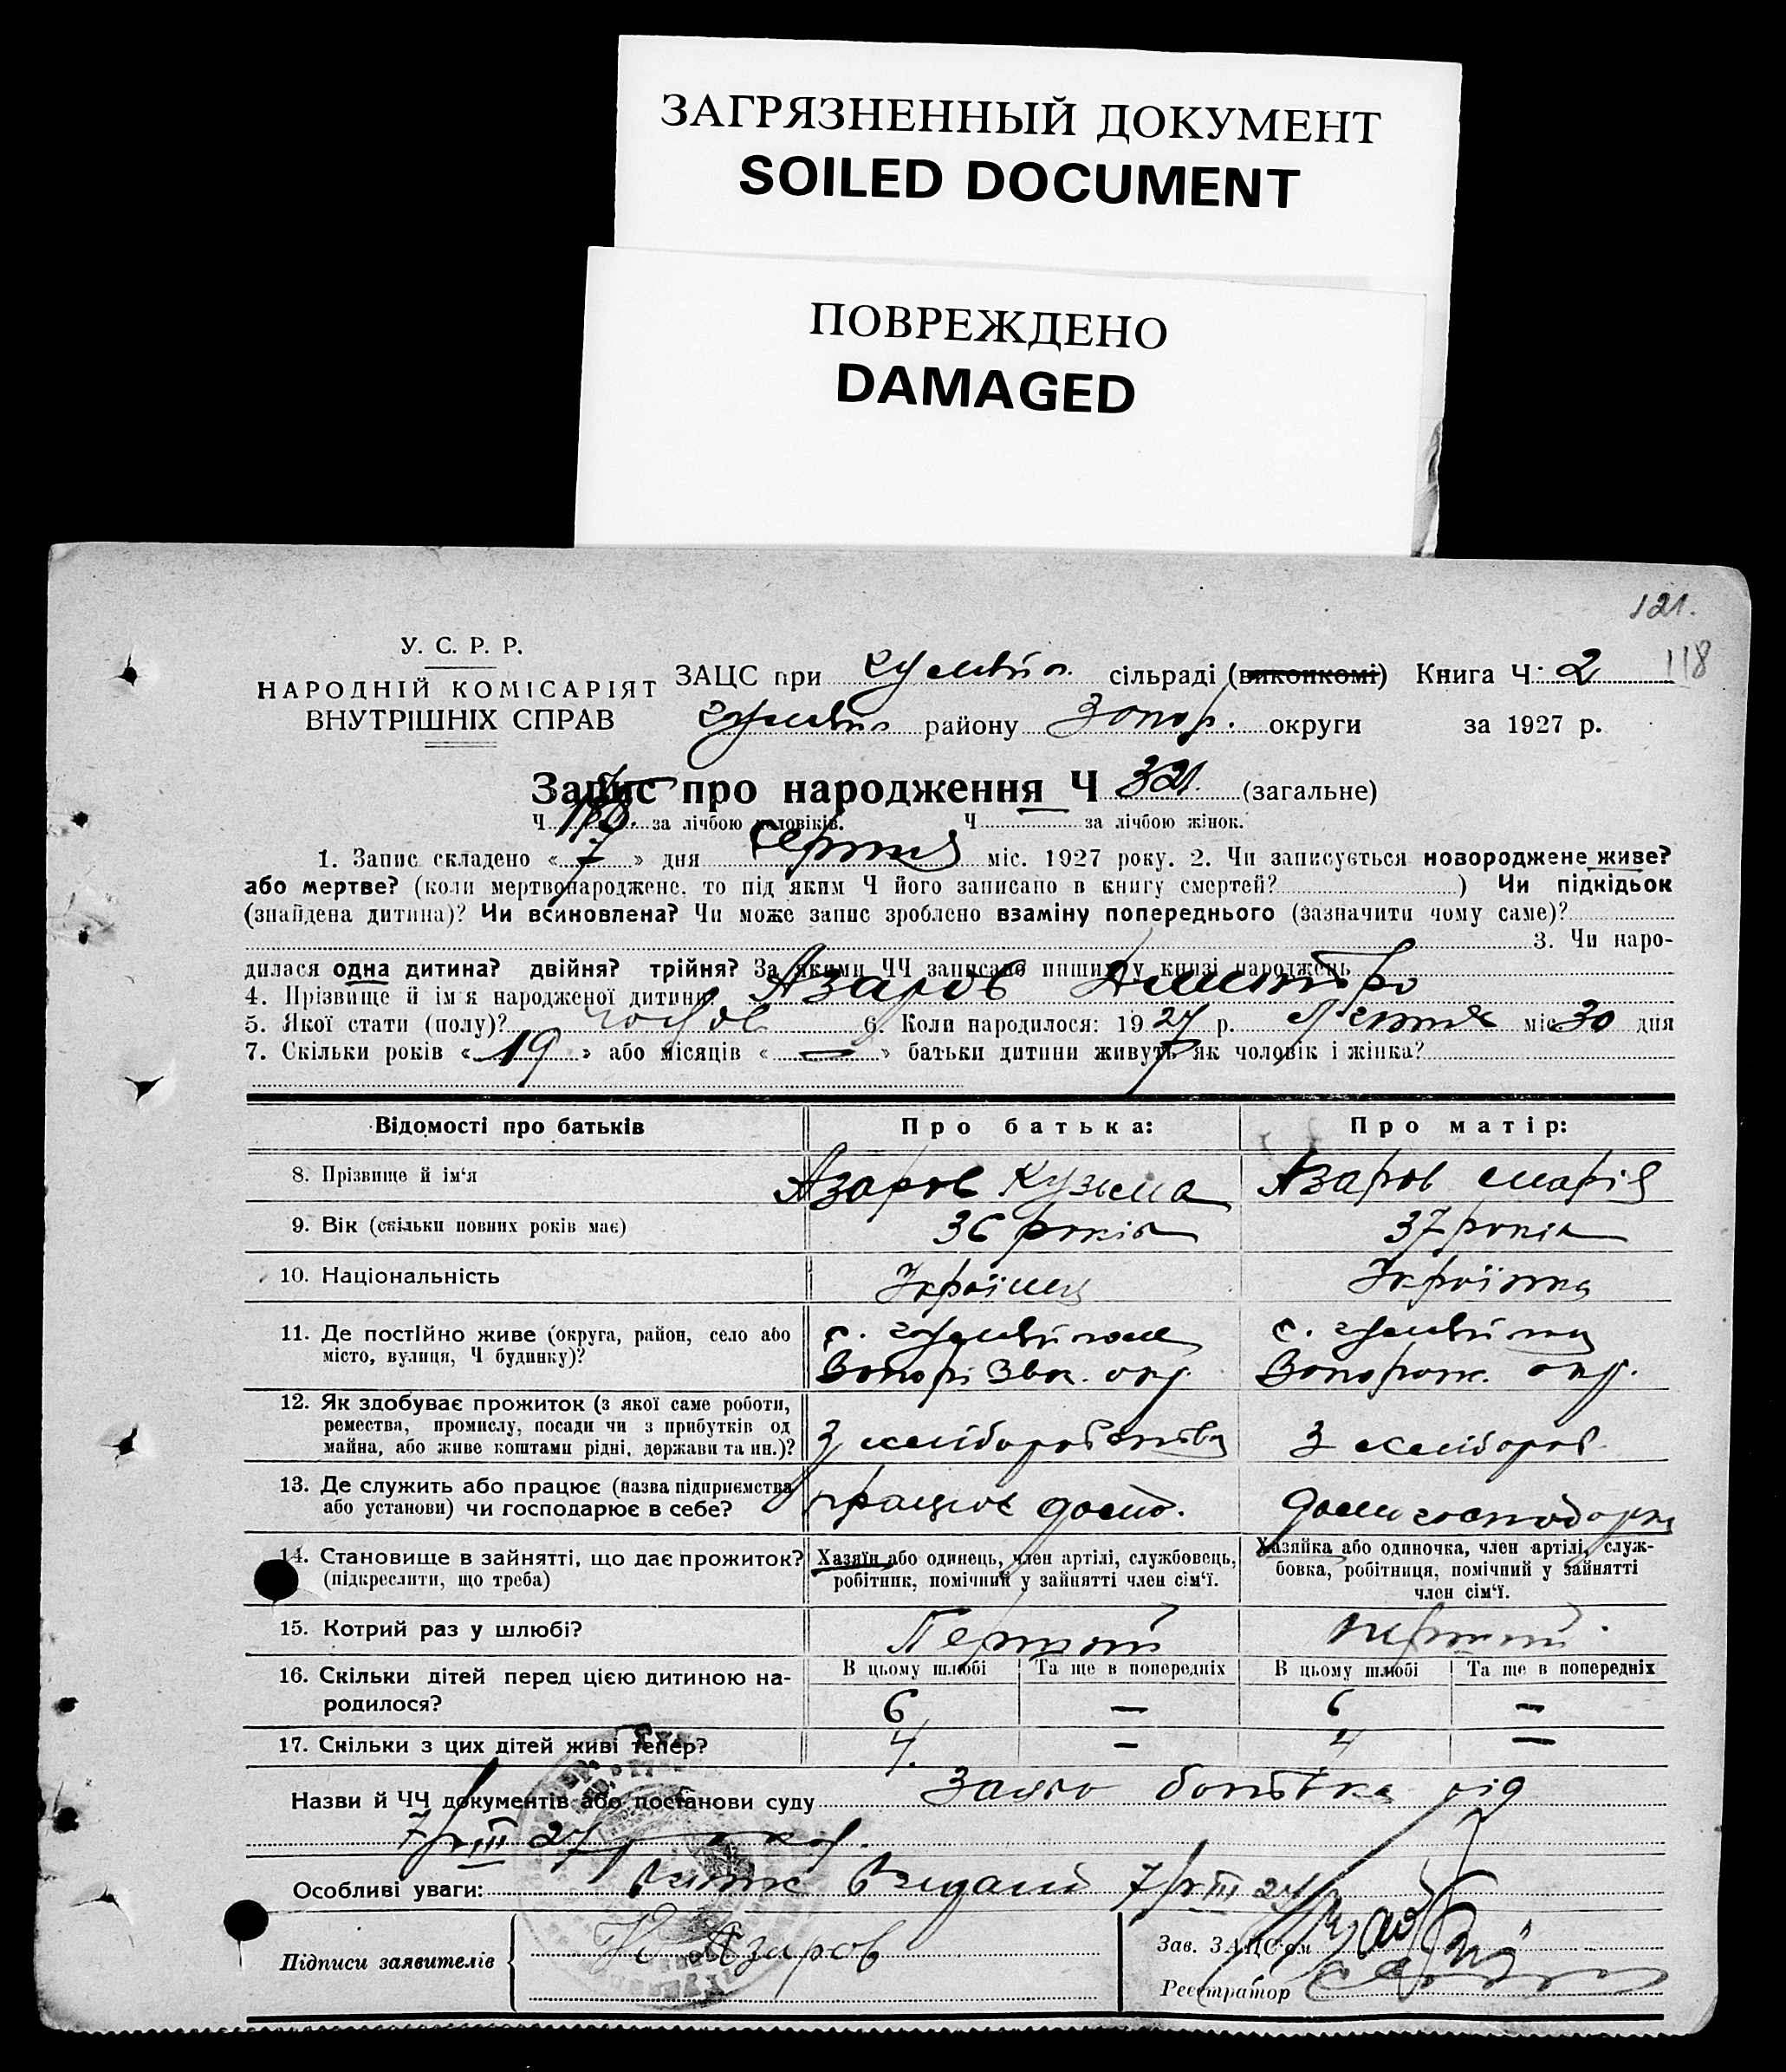 ЗАГРЯЗНЕННЫЙ ДОКУМЕНТ
SOILED DOCUMENT
ПОВРЕЖДЕНО
DAMAGED
121.
118
У. С. Р. Р.
НАРОДНІЙ КОМІСАРІЯТ
ВНУТРІШНІХ СПРАВ
ЗАЦС при сільраді (виконкомі) Книга Ч. 2
району Запор. округи за 1927 р.
Запис про народження Ч 321. (загальне)
Ч. за лічбою чоловіків. Ч. за лічбою жінок.
1. Запис складено « 7 » дня Серпня міс. 1927 року. 2. Чи записується новороджене живе?
або мертве? (коли мертвонароджене, то під яким Ч його записано в книгу смертей? ) Чи підкідьок
(знайдена дитина)? Чи всиновлена? Чи може запис зроблено взаміну попереднього (зазначити чому саме)?
3. Чи наро-
дилася одна дитина? двійня? трійня? За якими ЧЧ записано инших у книзі народжень
4. Прізвище й ім'я народженої дитини Азаров Дмитро
5. Якої стати (полу)? чолов 6. Коли народилося: 1927 р. Липня міс 30 дня
7. Скільки років « 19 » або місяців « — » батьки дитини живуть як чоловік і жінка?
Відомості про батьків Про батька: Про матір:
8. Прізвище й ім'я Азаров Кузьма Азаров Марія
9. Вік (скільки повних років має) 36 років 37 років
10. Національність Українец Українка
11. Де постійно живе (округа, район, село або
місто, вулиця, Ч будинку)?
12. Як здобуває прожиток (з якої саме роботи,
ремества, промислу, посади чи з прибутків од
майна, або живе коштами рідні, держави та ин.)? З хліборобства З хлібороб.
13. Де служить або працює (назва підприємства
або установи) чи господарює в себе? працює дома. домогосподарка
14. Становище в зайнятті, що дає прожиток?
(підкреслити, що треба)
Хазяїн або одинець, член артілі, службовець,
робітник, помічний у зайнятті член сім'ї.
Хазяйка або одиночка, член артілі, служ-
бовка, робітниця, помічний у зайнятті
член сім'ї.
15. Котрий раз у шлюбі? Перший перший
16. Скільки дітей перед цією дитиною на-
родилося?
В цьому шлюбі Та ще в попередніх В цьому шлюбі Та ще в попередніх
6 — 6 —
17. Скільки з цих дітей живі тепер? 4. — 4 —
Назви й ЧЧ документів або постанови суду Заява батька від
7/VIII 27
Особливі уваги: Витяг видано 7/VIII 27
Підписи заявителів К Азаров
Зав. ЗАЦС'ом
Реєстратор